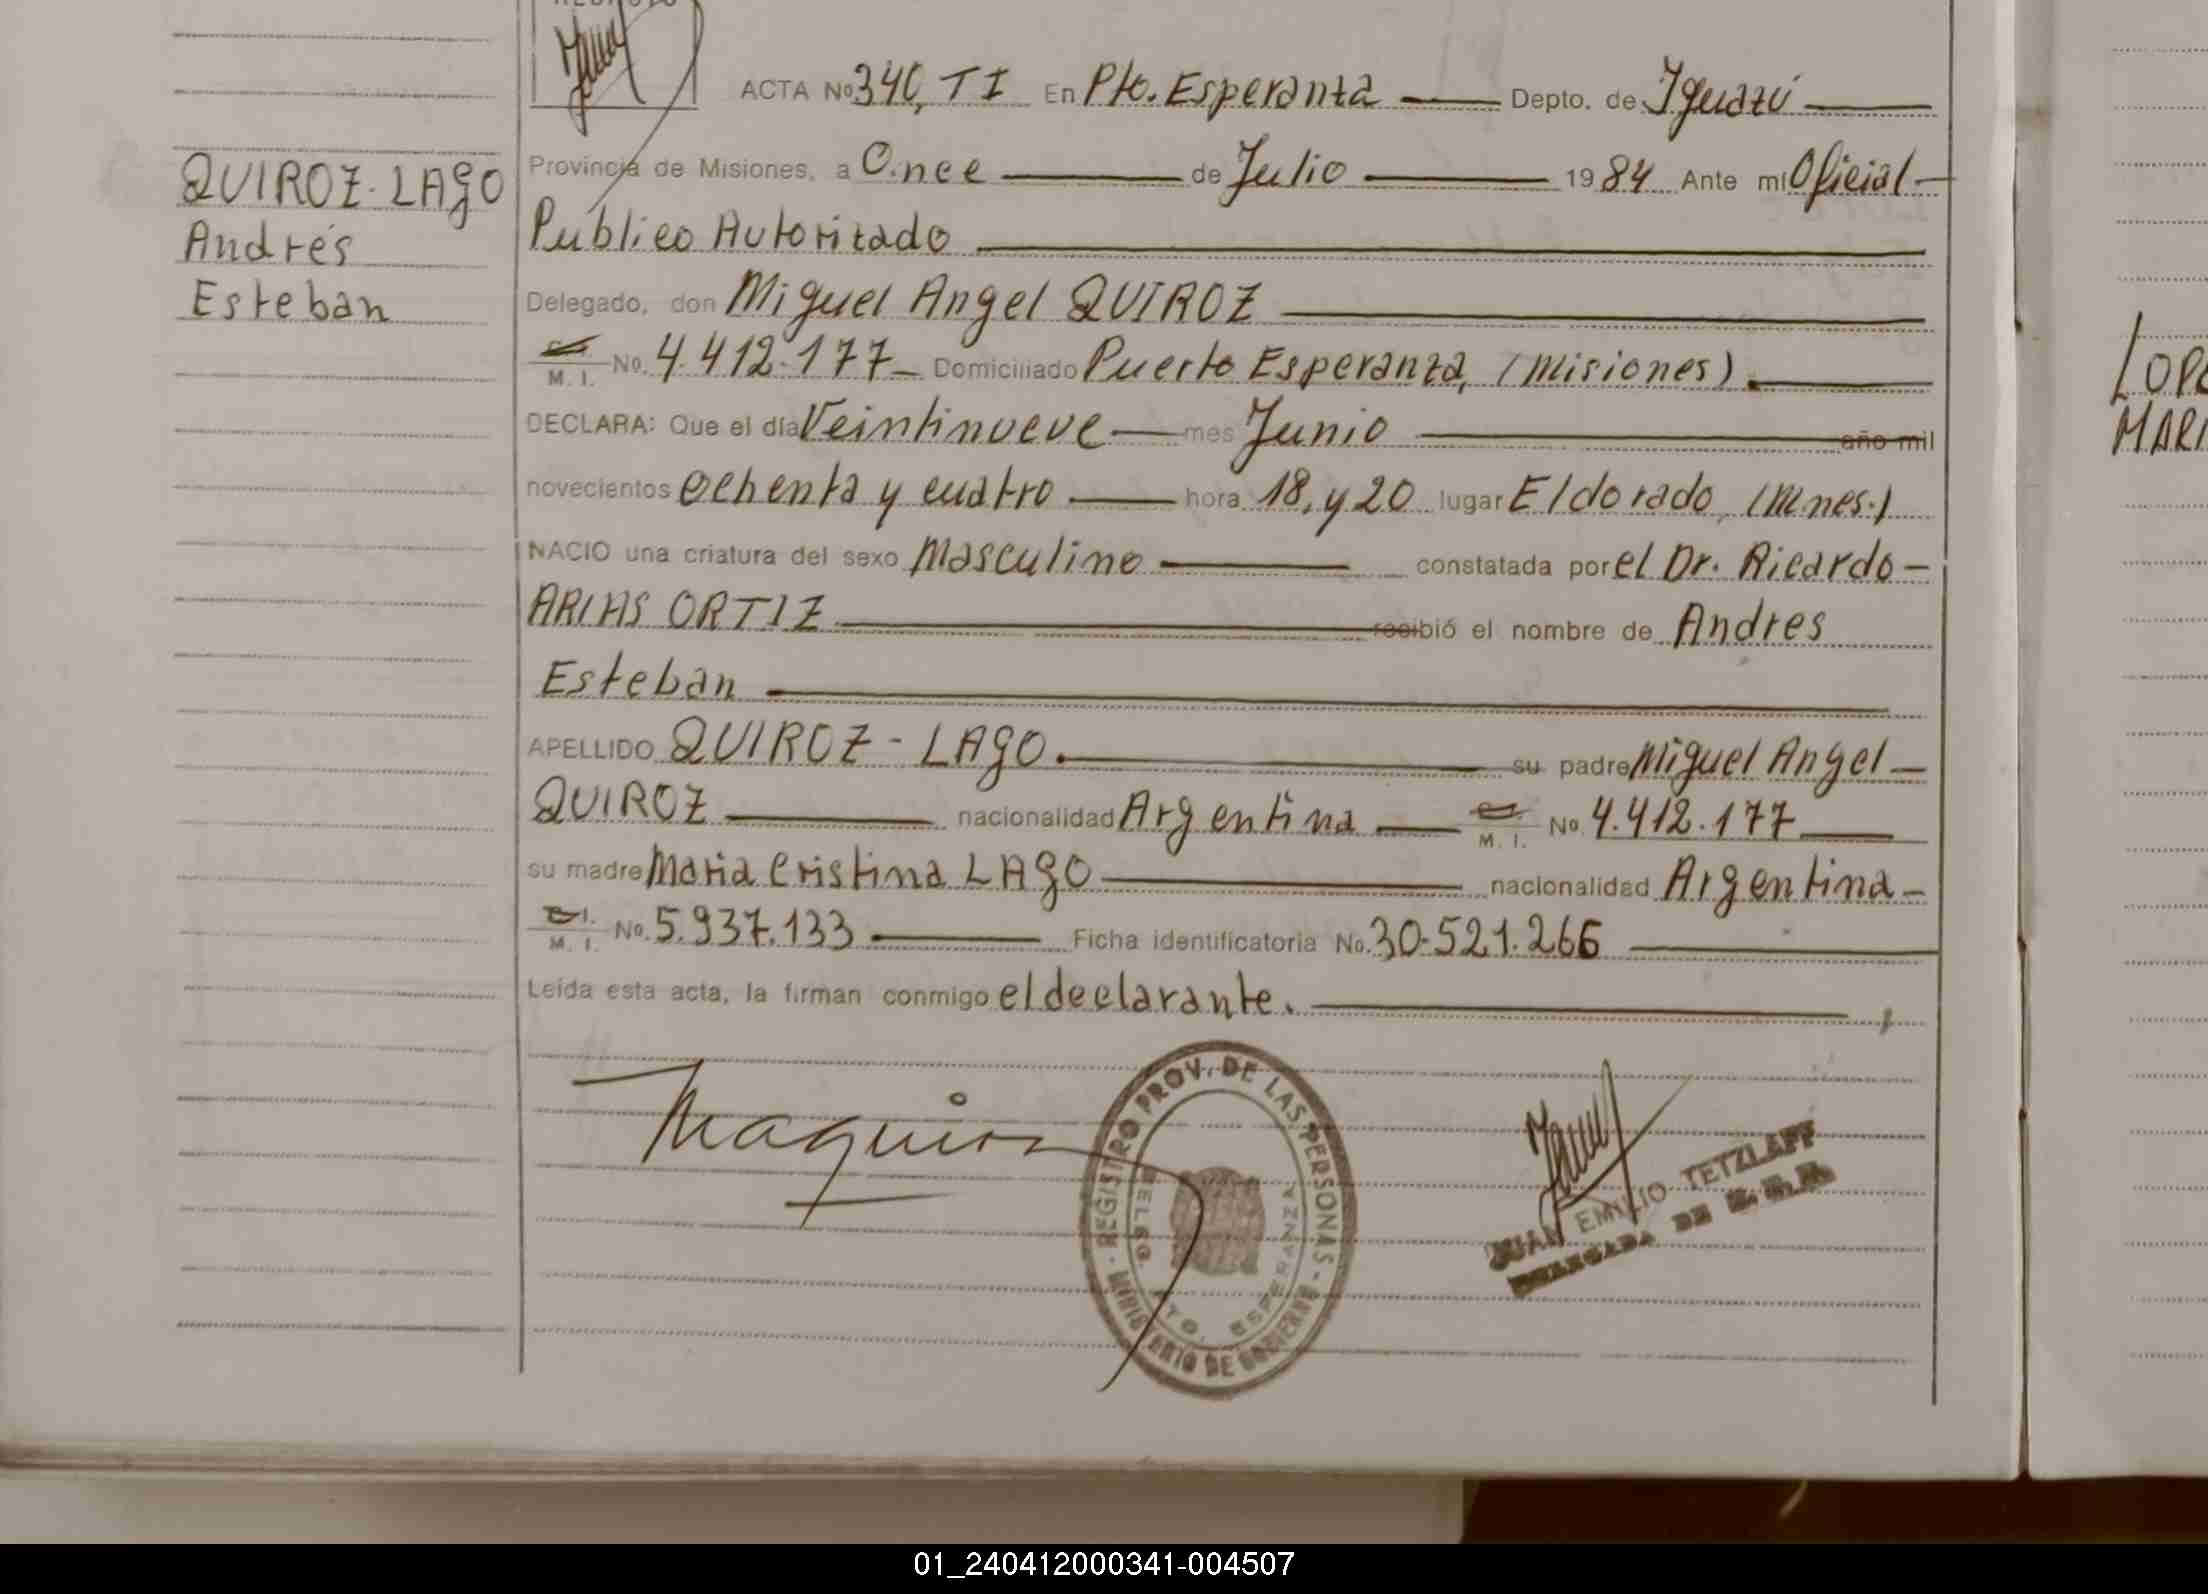 ACTA No 340, TI En Pto. Esperanza Depto. de Iguazú
Provincia de Misiones, a Once de Julio 1984 Ante mí Oficial
Público Autorizado
Delegado, don Miguel Angel QUIROZ
M. I. No. 4.412.177 Domiciliado Puerto Esperanza, (Misiones).
DECLARA: Que el día Veintinueve mes Junio año mil
novecientos ochenta y cuatro hora 18, y 20 lugar Eldorado, (Mnes.)
NACIO una criatura del sexo Masculino constatada por el Dr. Ricardo
ARIAS ORTIZ recibió el nombre de Andres
Esteban
APELLIDO QUIROZ - LAgO. su padre Miguel Angel
QUIROZ nacionalidad Argentina M. I. No. 4.412.177
su madre Maria Cristina LAgO nacionalidad Argentina
M. I. No. 5.937.133 Ficha identificatoria No. 30.521.266
Leída esta acta, la firman conmigo el declarante.
QUIROZ-LAgO
Andrés
Esteban
REGISTRO PROV. DE LAS PERSONAS - MINISTERIO DE GOBIERNO
DELEG. PTO. ESPERANZA
JUAN EMILIO TETZLAFF
LOPE
MARI
01_240412000341-004507